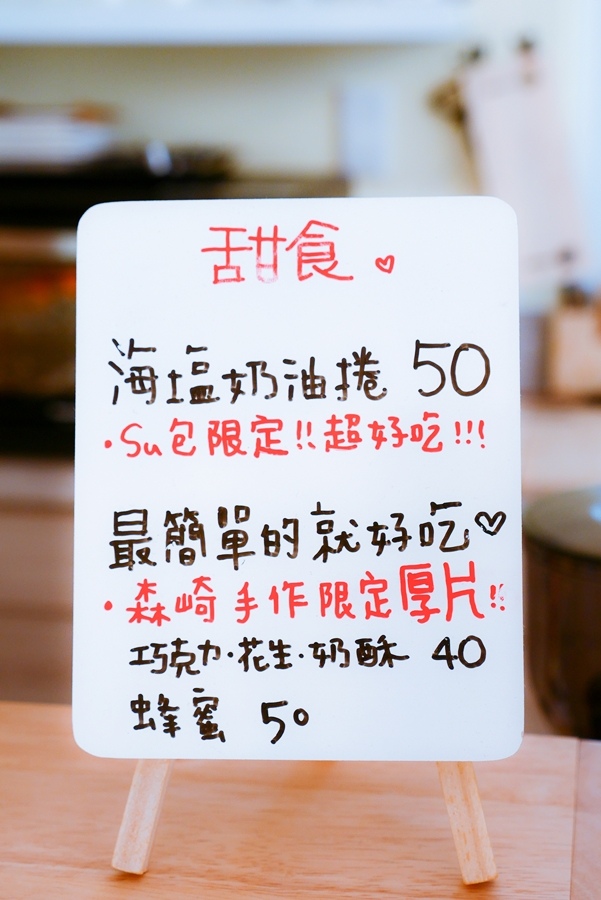 甜食♡
海塩奶油捲 50
・Su包限定!!超好吃!!!
最簡單的就好吃♡
・森崎手作限定厚片!!
巧克力・花生・奶酥 40
蜂蜜 50